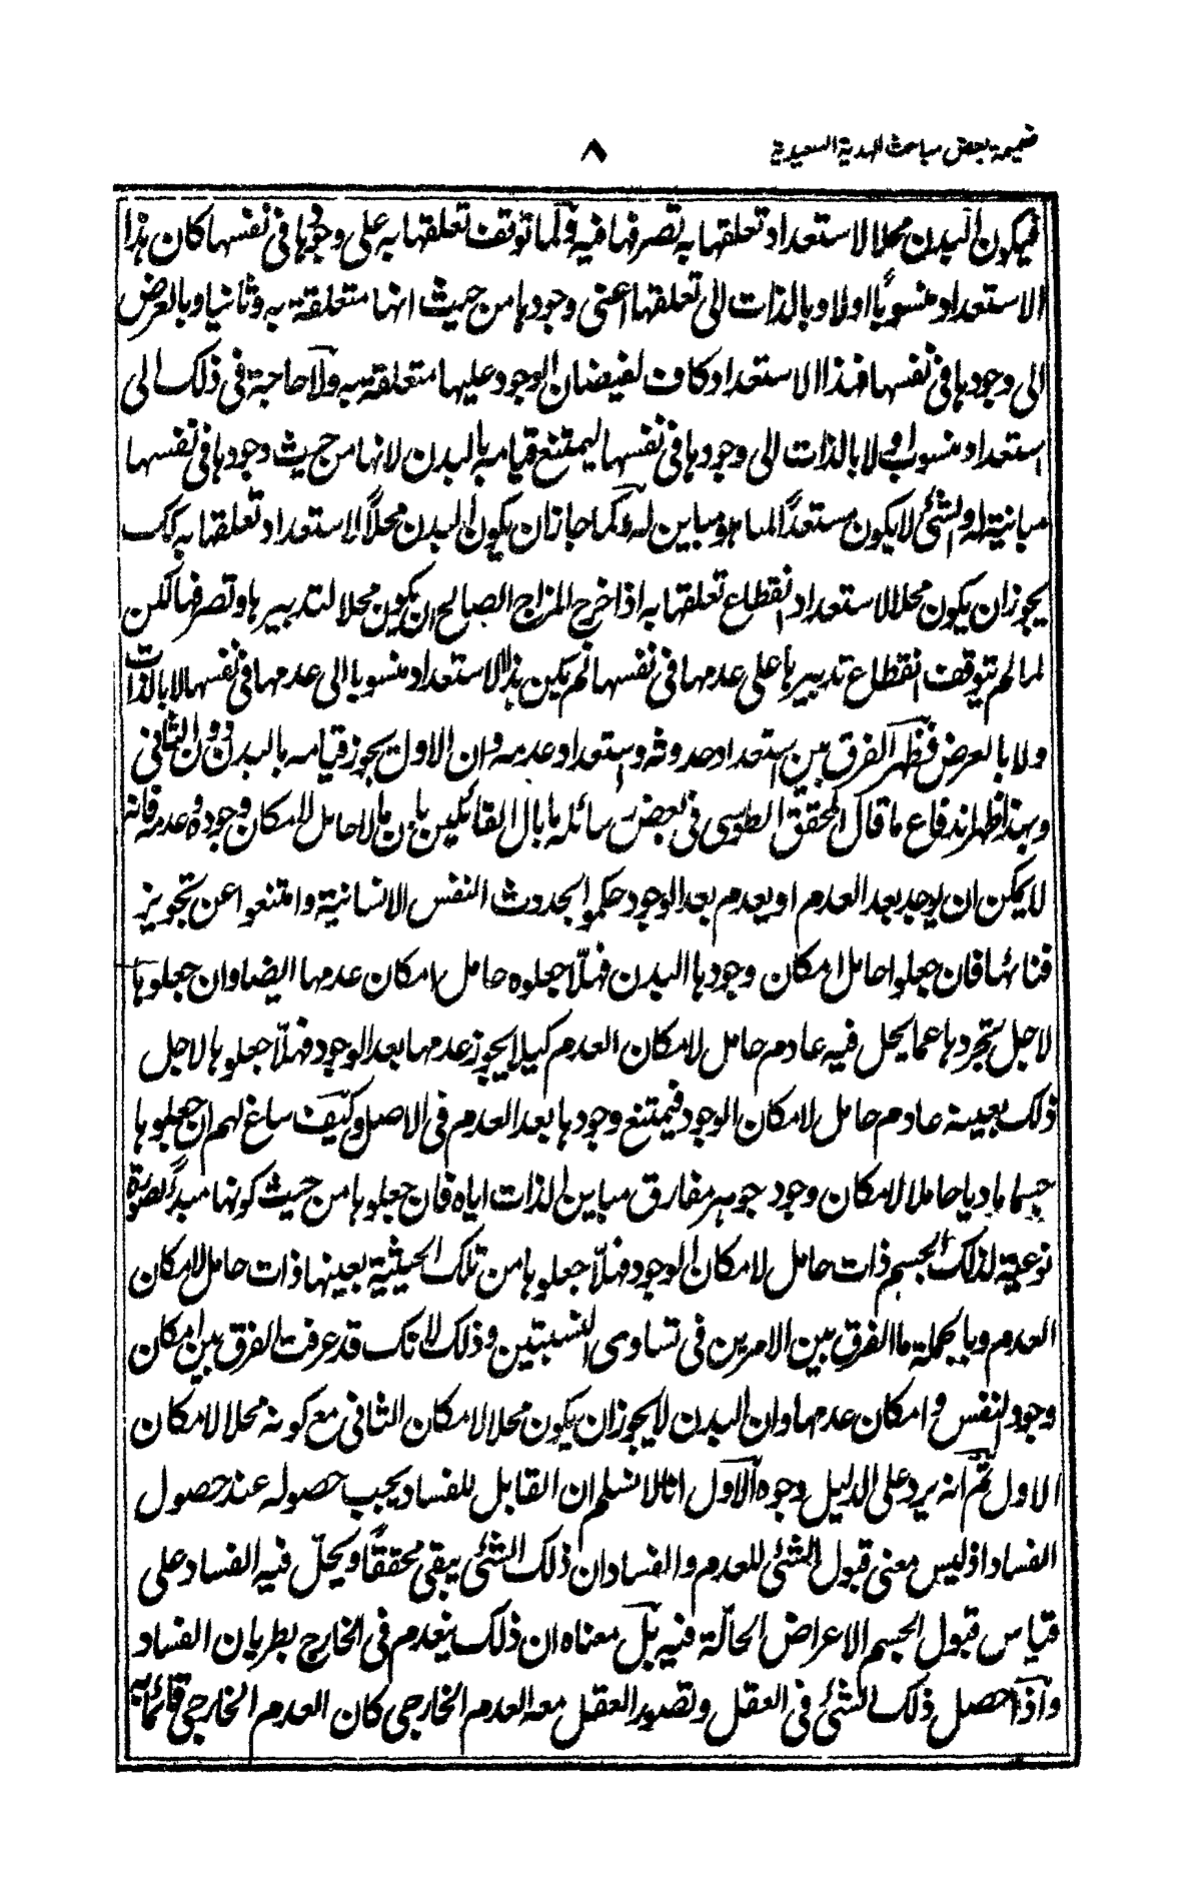 ضميمة بعض مباحث الهدية السعيدية
٨
فيكون البدن محلا لاستعداد تعلقها به تصرفها فيه ولما توقف تعلقها به على وجودها في نفسها كان هذا
الاستعداد منسوبًا اولا وبالذات الى تعلقها اعنى وجودها من حيث انها متعلقة به وثانيا وبالعرض
الى وجودها فى نفسها فهذا الاستعداد كاف لفيضان الوجود عليها متعلقة به ولا حاجة فى ذلك الى
استعداد منسوب اولا بالذات الى وجودها فى نفسها ليمتنع قيامه بالبدن لانها من حيث وجودها فى نفسها
مباينة له والشئ لا يكون مستعدًا لما هو مباين له وكما جاز ان يكون البدن محلًا لاستعداد تعلقها به كك
يجوز ان يكون محلا لاستعداد انقطاع تعلقها به اذا خرج المزاج الصالح ان يكون محلا لتدبيرها وتصرفها لكن
لما لم يتوقف انقطاع تدبيرها على عدمها فى نفسها لم يكن هذا الاستعداد منسوبا الى عدمها فى نفسها لا بالذات
ولا بالعرض فظهر الفرق بين استعداد حدوثه واستعداد عدمه وان الاول يجوز قيامه بالبدن دون الثانى
وبهذا ظهر اندفاع ما قال المحقق الطوسى فى بعض رسائله ما بال القائلين بان ما لا حامل لامكان وجوده وعدمه فانه
لا يمكن ان يوجد بعد العدم او يعدم بعد الوجود حكموا بحدوث النفس الانسانية وامتنعوا عن تجويز
فنائها فان جعلوا حامل امكان وجودها البدن فهلّا جعلوه حامل امكان عدمها ايضا وان جعلوها
لاجل تجردها عما يحل فيه عادم حامل لامكان العدم كيلا يجوز عدمها بعد الوجود فهلّا جعلوها لاجل
ذلك بعينه عادم حامل لامكان الوجود فيمتنع وجودها بعد العدم فى الاصل وكيف ساغ لهم ان جعلوها
جسما ماديا حاملا لامكان وجود جوهر مفارق مباين الذات اياه فان جعلوها من حيث كونها مبدأ لصورة
نوعية لذلك الجسم ذات حامل لامكان الوجود فهلّا جعلوها من تلك الحيثية بعينها ذات حامل لامكان
العدم وبالجملة ما الفرق بين الامرين فى تساوى النسبتين وذلك لانك قد عرفت الفرق بين امكان
وجود النفس وامكان عدمها وان البدن لا يجوز ان يكون محلا لامكان الثانى مع كونه محلا لامكان
الاول ثم انه يرد على الدليل وجوه الاول انا لا نسلم ان القابل للفساد يجب حصوله عند حصول
الفساد اذ ليس معنى قبول الشئ للعدم والفساد ان ذلك الشئ يبقى محققًا ويحلّ فيه الفساد على
قياس قبول الجسم الاعراض الحالّة فيه بل معناه ان ذلك ينعدم فى الخارج بطريان الفساد
واذا حصل ذلك الشئ فى العقل وتصور العقل معه العدم الخارجى كان العدم الخارجى قائمًا به